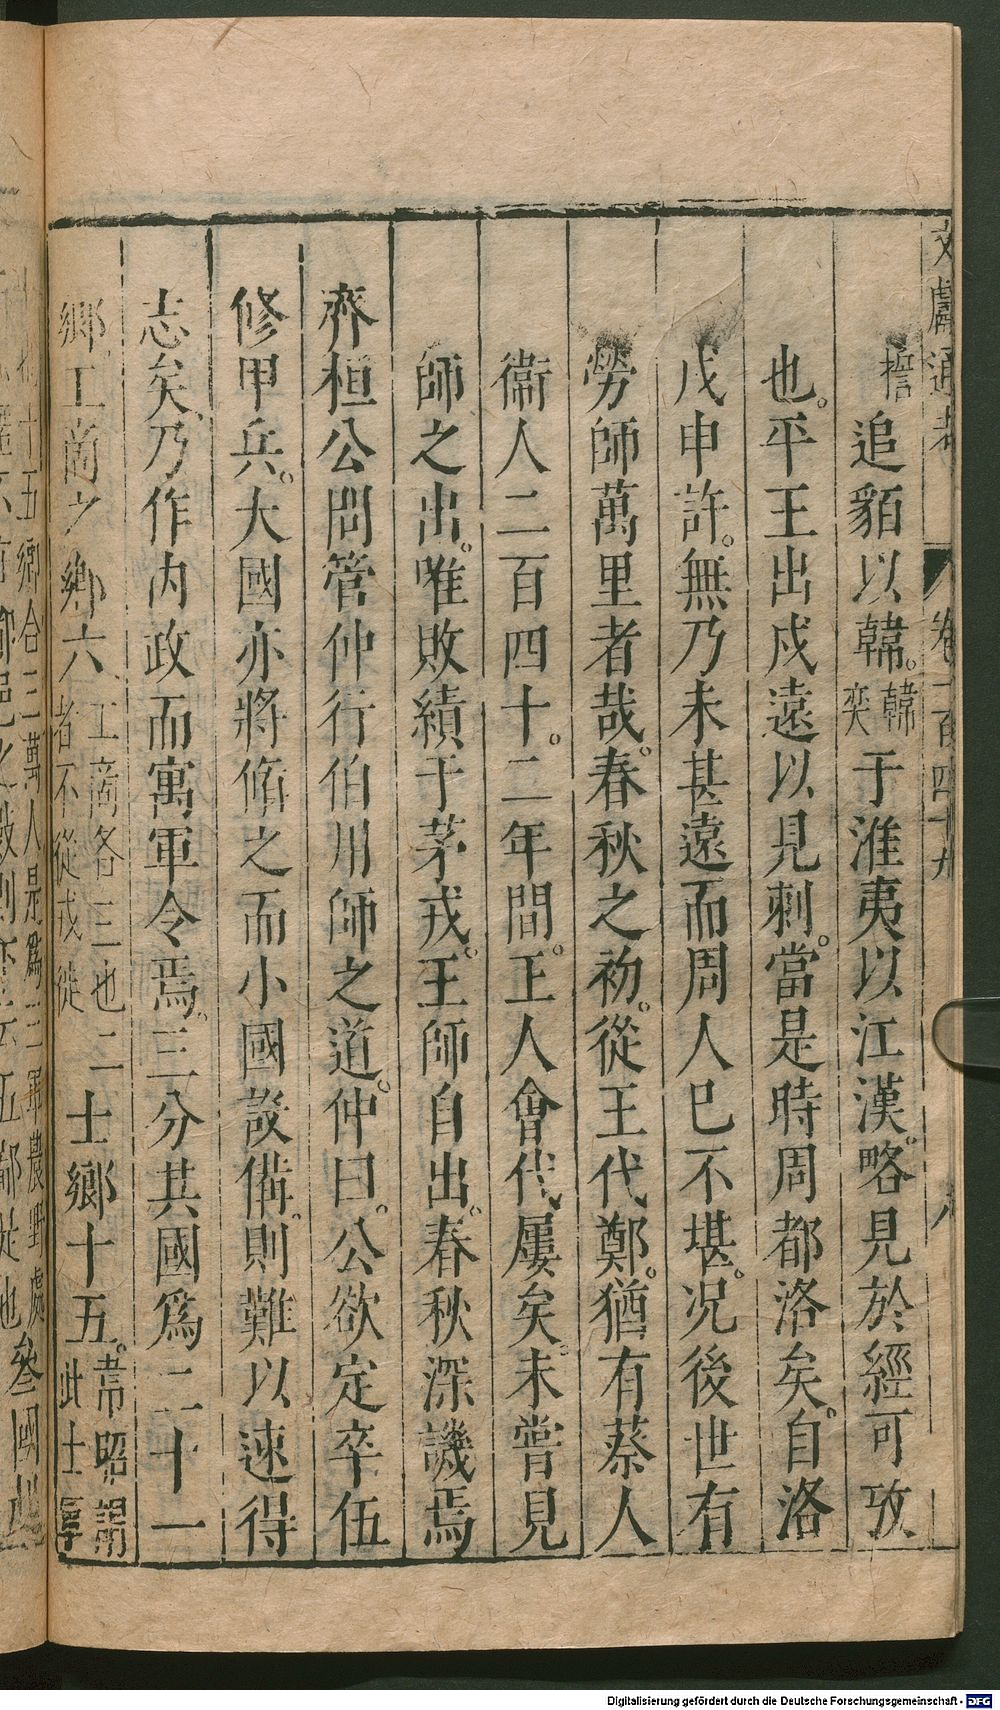 文獻通考 卷一百四十九 八
簷追貊以韓。韓奕于淮夷以江漢。略見於經可攷
也。平王出戍遠以見刺。當是時周都洛矣。自洛
戍申許。無乃未甚遠而周人已不堪。况後世有
勞師萬里者哉。春秋之初。從王伐鄭。猶有蔡人
衞人二百四十。二年間。王人會伐屢矣。未嘗見
師之出。唯敗績于茅戎。王師自出。春秋深譏焉
齊桓公問管仲行伯用師之道。仲曰。公欲定卒伍
修甲兵。大國亦將脩之而小國設備。則難以速得
志矣。乃作内政而寓軍令焉。三分其國爲二十一
鄉工商之鄉六工商各三也二者不從戎徙士鄉十五。韋昭謂此士軍
十五鄉合三萬人是爲三軍農野處
叄國起
Digitalisierung gefördert durch die Deutsche Forschungsgemeinschaft - DFG